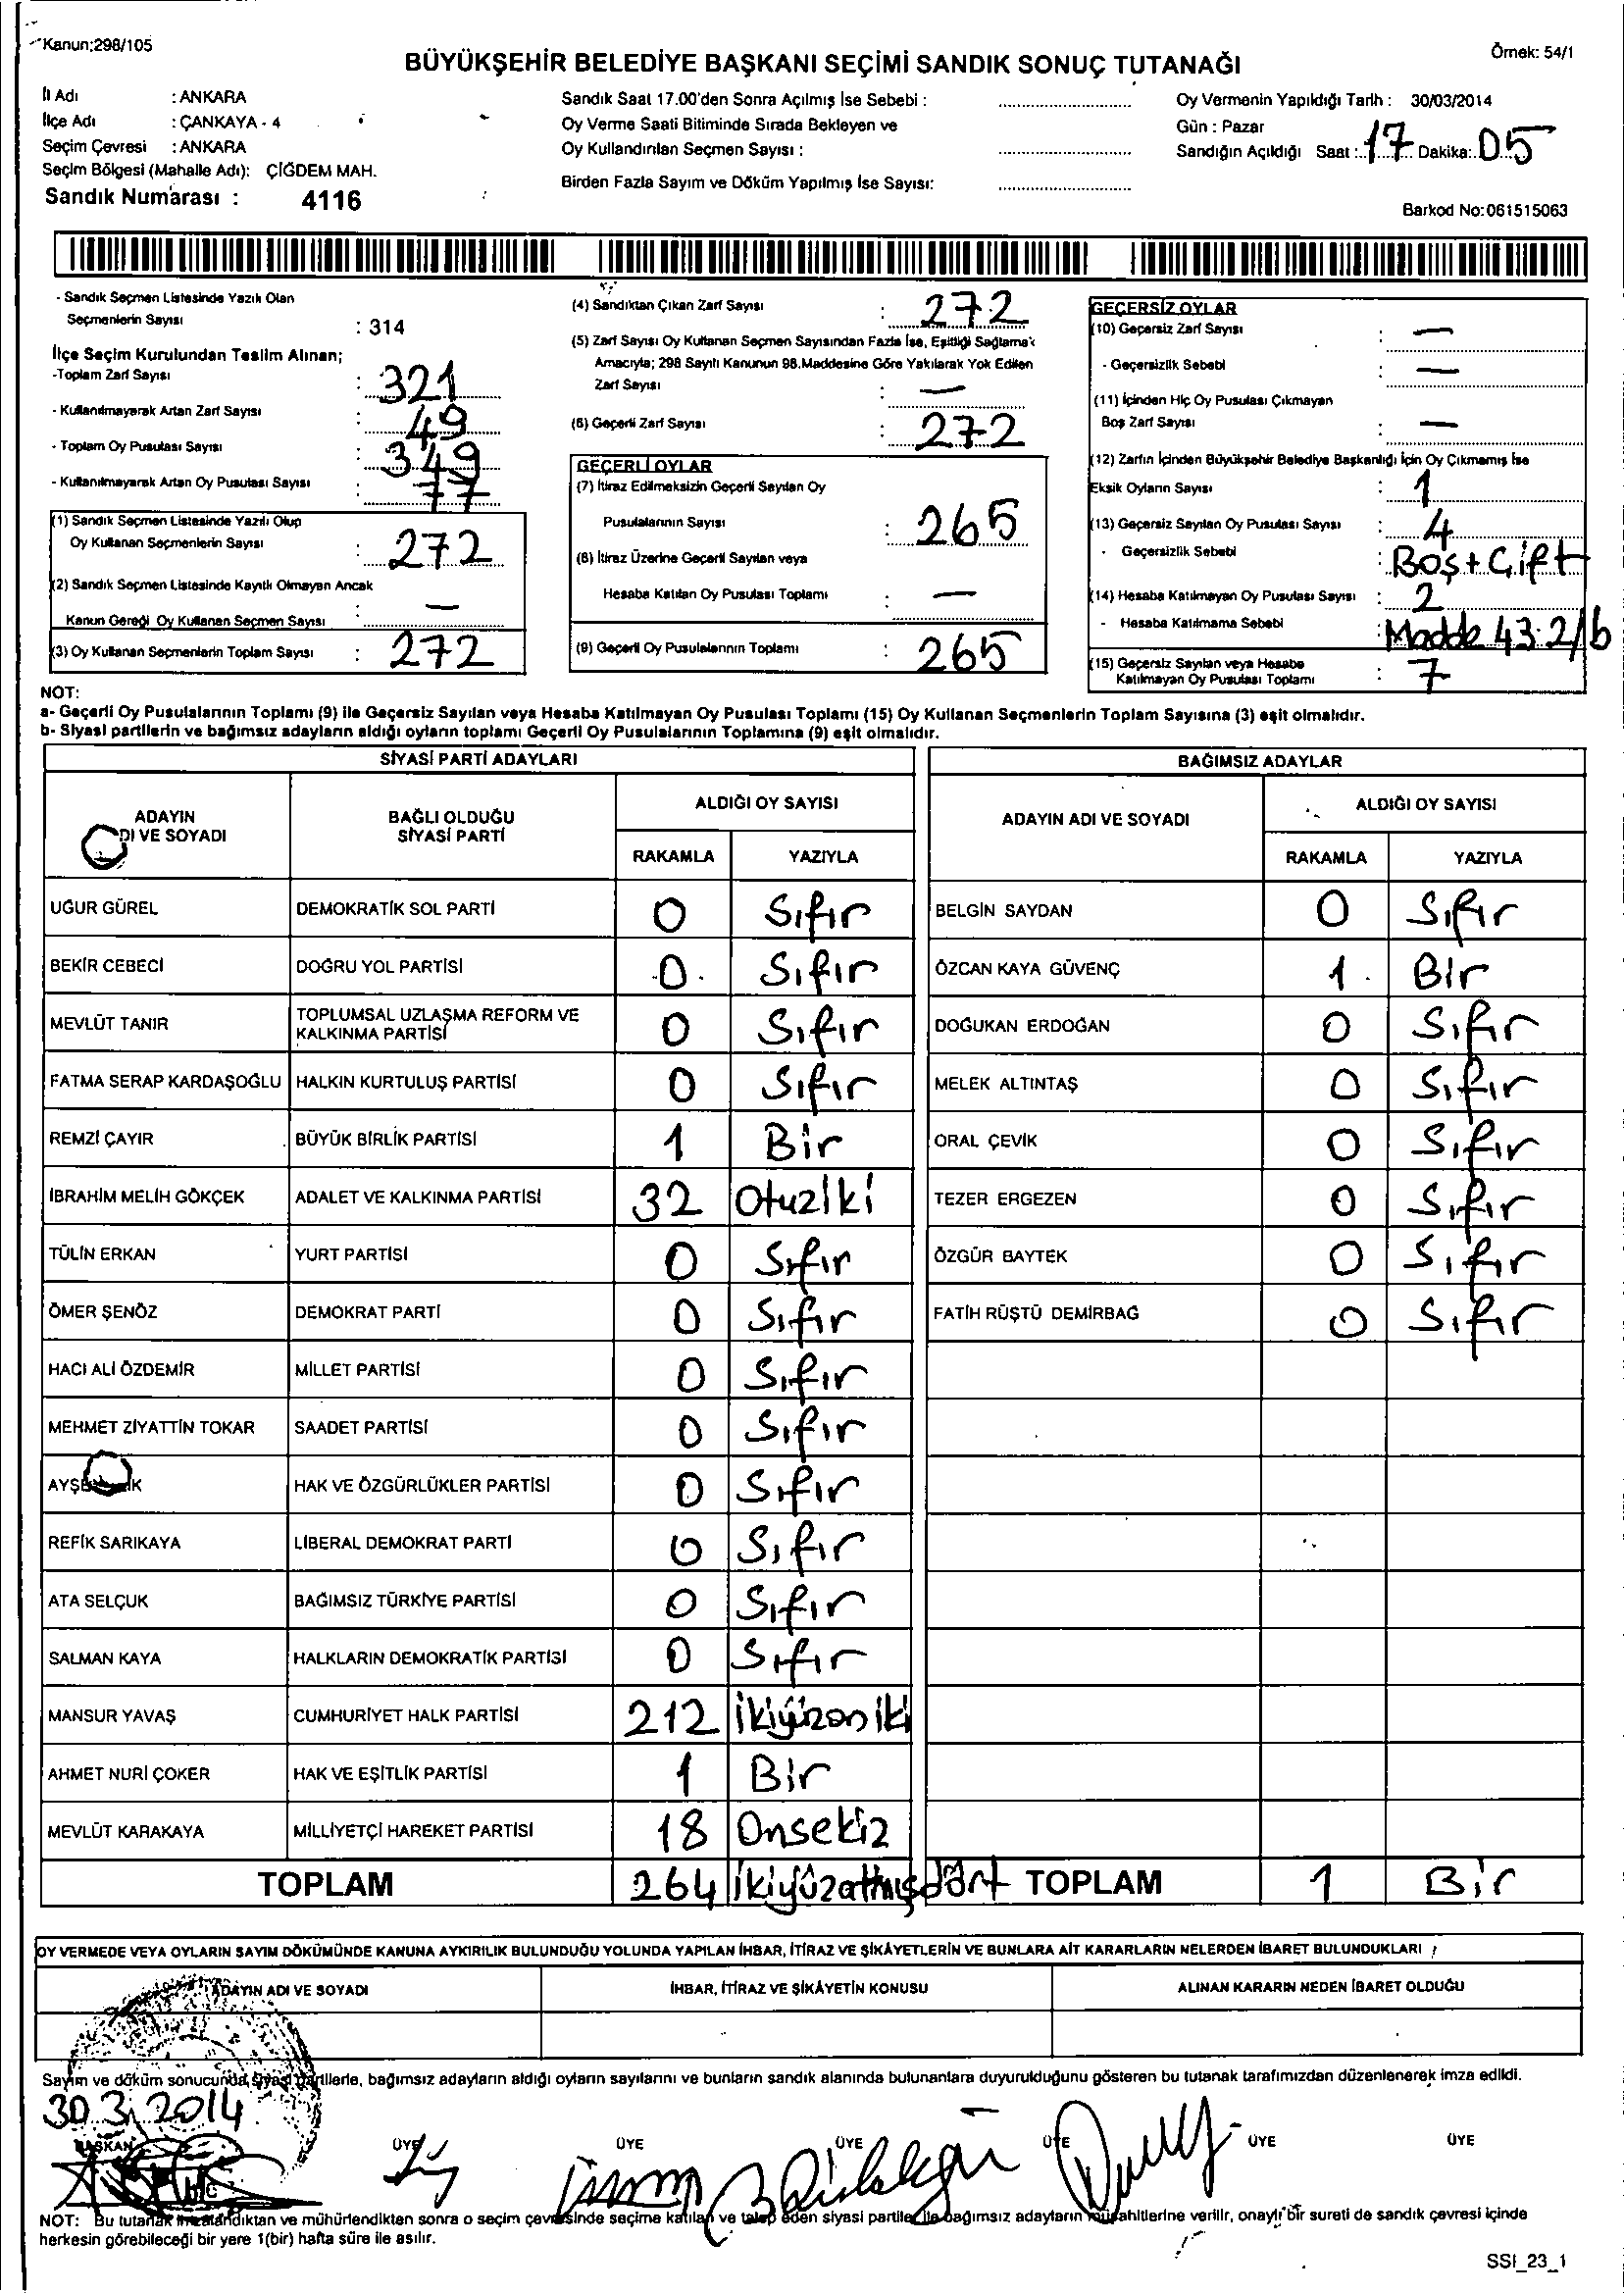 Kanun:298/105
Örnek: 54/1
BÜYÜKŞEHİR BELEDİYE BAŞKANI SEÇİMİ SANDIK SONUÇ TUTANAĞI
İl Adı : ANKARA
İlçe Adı : ÇANKAYA - 4
Seçim Çevresi : ANKARA
Seçim Bölgesi (Mahalle Adı): ÇİĞDEM MAH.
Sandık Numarası : 4116
Sandık Saat 17.00'den Sonra Açılmış İse Sebebi :
Oy Verme Saati Bitiminde Sırada Bekleyen ve
Oy Kullandırılan Seçmen Sayısı :
Birden Fazla Sayım ve Döküm Yapılmış İse Sayısı:
Oy Vermenin Yapıldığı Tarih : 30/03/2014
Gün : Pazar
Sandığın Açıldığı Saat : 17 Dakika: 05
Barkod No:061515063
- Sandık Seçmen Listesinde Yazılı Olan
Seçmenlerin Sayısı : 314
İlçe Seçim Kurulundan Teslim Alınan;
-Toplam Zarf Sayısı : 321
- Kullanılmayarak Artan Zarf Sayısı : 49
- Toplam Oy Pusulası Sayısı : 349
- Kullanılmayarak Artan Oy Pusulası Sayısı : 77
(1) Sandık Seçmen Listesinde Yazılı Olup
Oy Kullanan Seçmenlerin Sayısı : 272
(2) Sandık Seçmen Listesinde Kayıtlı Olmayan Ancak
Kanun Gereği Oy Kullanan Seçmen Sayısı : —
(3) Oy Kullanan Seçmenlerin Toplam Sayısı : 272
(4) Sandıktan Çıkan Zarf Sayısı : 272
(5) Zarf Sayısı Oy Kullanan Seçmen Sayısından Fazla İse, Eşitliği Sağlamak
Amacıyla; 298 Sayılı Kanunun 98.Maddesine Göre Yakılarak Yok Edilen
Zarf Sayısı : —
(6) Geçerli Zarf Sayısı : 272
GEÇERLİ OYLAR
(7) İtiraz Edilmeksizin Geçerli Sayılan Oy
Pusulalarının Sayısı : 265
(8) İtiraz Üzerine Geçerli Sayılan veya
Hesaba Katılan Oy Pusulası Toplamı : —
(9) Geçerli Oy Pusulalarının Toplamı : 265
GEÇERSİZ OYLAR
(10) Geçersiz Zarf Sayısı : —
- Geçersizlik Sebebi : —
(11) İçinden Hiç Oy Pusulası Çıkmayan
Boş Zarf Sayısı : —
(12) Zarfın İçinden Büyükşehir Belediye Başkanlığı İçin Oy Çıkmamış İse
Eksik Oyların Sayısı : 1
(13) Geçersiz Sayılan Oy Pusulası Sayısı : 4
- Geçersizlik Sebebi : Boş+Çift
(14) Hesaba Katılmayan Oy Pusulası Sayısı : 2
- Hesaba Katılmama Sebebi : Madde 43.2/b
(15) Geçersiz Sayılan veya Hesaba
Katılmayan Oy Pusulası Toplamı : 7
NOT:
a- Geçerli Oy Pusulalarının Toplamı (9) ile Geçersiz Sayılan veya Hesaba Katılmayan Oy Pusulası Toplamı (15) Oy Kullanan Seçmenlerin Toplam Sayısına (3) eşit olmalıdır.
b- Siyasi partilerin ve bağımsız adayların aldığı oyların toplamı Geçerli Oy Pusulalarının Toplamına (9) eşit olmalıdır.
SİYASİ PARTİ ADAYLARI
ADAYIN
DI VE SOYADI
BAĞLI OLDUĞU
SİYASİ PARTİ
ALDIĞI OY SAYISI
RAKAMLA YAZIYLA
UĞUR GÜREL DEMOKRATİK SOL PARTİ 0 Sıfır
BEKİR CEBECİ DOĞRU YOL PARTİSİ 0 Sıfır
MEVLÜT TANIR TOPLUMSAL UZLAŞMA REFORM VE
KALKINMA PARTİSİ 0 Sıfır
FATMA SERAP KARDAŞOĞLU HALKIN KURTULUŞ PARTİSİ 0 Sıfır
REMZİ ÇAYIR BÜYÜK BİRLİK PARTİSİ 1 Bir
İBRAHİM MELİH GÖKÇEK ADALET VE KALKINMA PARTİSİ 32 Otuziki
TÜLİN ERKAN YURT PARTİSİ 0 Sıfır
ÖMER ŞENÖZ DEMOKRAT PARTİ 0 Sıfır
HACI ALİ ÖZDEMİR MİLLET PARTİSİ 0 Sıfır
MEHMET ZİYATTİN TOKAR SAADET PARTİSİ 0 Sıfır
AYŞE HAK VE ÖZGÜRLÜKLER PARTİSİ 0 Sıfır
REFİK SARIKAYA LİBERAL DEMOKRAT PARTİ 0 Sıfır
ATA SELÇUK BAĞIMSIZ TÜRKİYE PARTİSİ 0 Sıfır
SALMAN KAYA HALKLARIN DEMOKRATİK PARTİSİ 0 Sıfır
MANSUR YAVAŞ CUMHURİYET HALK PARTİSİ 212 İkiyüzoniki
AHMET NURİ ÇOKER HAK VE EŞİTLİK PARTİSİ 1 Bir
MEVLÜT KARAKAYA MİLLİYETÇİ HAREKET PARTİSİ 18 Onsekiz
TOPLAM 264 İkiyüzatmışdört
BAĞIMSIZ ADAYLAR
ADAYIN ADI VE SOYADI
ALDIĞI OY SAYISI
RAKAMLA YAZIYLA
BELGİN SAYDAN 0 Sıfır
ÖZCAN KAYA GÜVENÇ 1 Bir
DOĞUKAN ERDOĞAN 0 Sıfır
MELEK ALTINTAŞ 0 Sıfır
ORAL ÇEVİK 0 Sıfır
TEZER ERGEZEN 0 Sıfır
ÖZGÜR BAYTEK 0 Sıfır
FATİH RÜŞTÜ DEMİRBAĞ 0 Sıfır
TOPLAM 1 Bir
OY VERMEDE VEYA OYLARIN SAYIM DÖKÜMÜNDE KANUNA AYKIRILIK BULUNDUĞU YOLUNDA YAPILAN İHBAR, İTİRAZ VE ŞİKÂYETLERİN VE BUNLARA AİT KARARLARIN NELERDEN İBARET BULUNDUKLARI
ADAYIN ADI VE SOYADI
İHBAR, İTİRAZ VE ŞİKÂYETİN KONUSU
ALINAN KARARIN NEDEN İBARET OLDUĞU
Sayım ve döküm sonucunda, siyasi partilerle, bağımsız adayların aldığı oyların sayılarını ve bunların sandık alanında bulunanlara duyurulduğunu gösteren bu tutanak tarafımızdan düzenlenerek imza edildi.
30.3.2014
BAŞKAN ÜYE ÜYE ÜYE ÜYE ÜYE ÜYE
NOT: Bu tutanak imzalandıktan ve mühürlendikten sonra o seçim çevresinde seçime katılan ve talep eden siyasi partiler ile bağımsız adayların müşahitlerine verilir, onaylı bir sureti de sandık çevresi içinde
herkesin görebileceği bir yere 1(bir) hafta süre ile asılır.
SSI_23_1